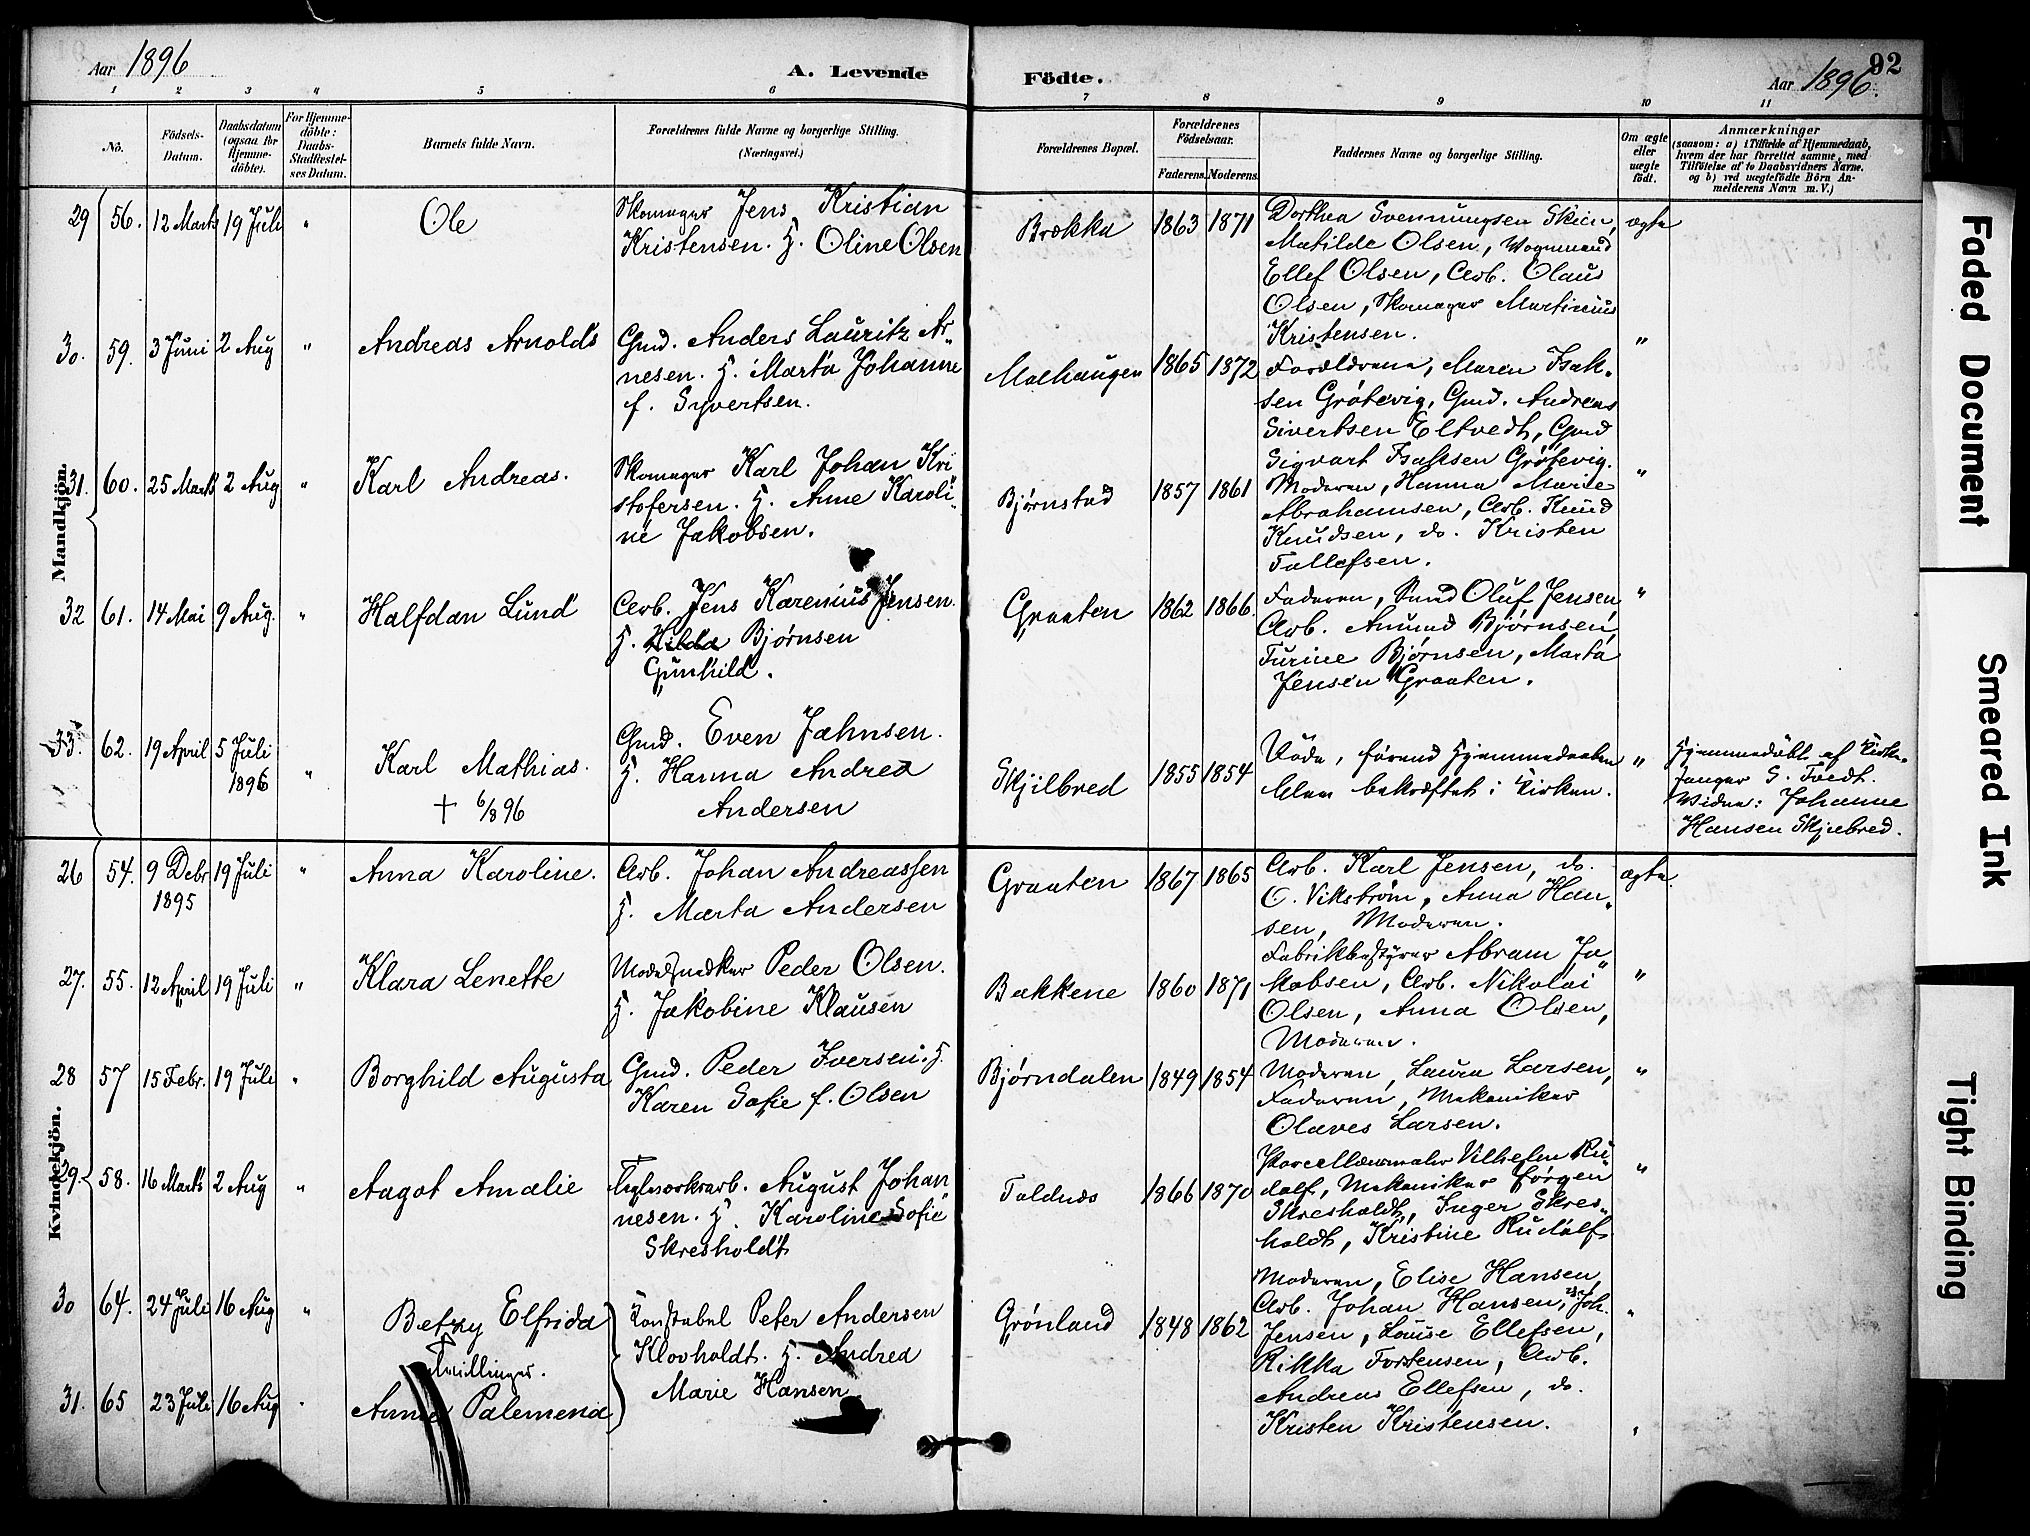 Aar 1896
A. Levende
Födte.
Aar 1896.
92
1 2 3 4 5 6 7 8 9 10 11
No.
Födsels-
Datum.
Daabsdatum
(ogsaa for
Hjemme-
döbte).
For Hjemme-
döbte:
Daabs-
Stadfæstel-
ses Datum.
Barnets fulde Navn.
Forældrenes fulde Navne og borgerlige Stilling.
(Næringsvei.)
Forældrenes Bopæl.
Forældrenes
Födselsaar.
Faderens. Moderens.
Faddernes Navne og borgerlige Stilling.
Om ægte
eller
uægte
födt.
Anmærkninger
(saasom: a) i Tilfælde af Hjemmedaab,
hvem der har forrettet samme, med
Tilföielse af to Daabsvidners Navne,
og b) ved uægtefödte Börn An-
melderens Navn m. V.)
Mandkjön.
29 56. 12 Marts 19 Juli " Ole
Skomager Jens Kristian
Kristensen. H. Oline Olsen
Brække 1863 1871
Dorthea Svennungsen Skien,
Matilde Olsen, Vognmand
Ellef Olsen, Arb. Olaus
Olsen, Skomager Martinius
Kristensen.
ægte
30. 59. 3 Juni 2 Aug " Andreas Arnolds
Gmd. Anders Lauritz Ar„
nesen. H. Marta Johanne
f. Syvertsen.
Molhaugen 1865 1872
Forældrene, Maren Isak„
sen Grôtevig, Gmd. Andreas
Sivertsen Eltvedt, Gmd
Sigvart Isaksen Grôtevig.
"
31. 60. 25 Marts 2 Aug " Karl Andreas.
Skomager Karl Johan Kri
stofersen. H. Anne Karoli„
ne Jakobsen.
Bjørnstad 1857 1861
Moderen, Hanna Marie
Abrahamsen, Arb. Knud
Knudsen, do. Kristen
Tollefsen.
"
32 61. 14 Mai 9 Aug. " Halfdan Lund
Arb. Jens Karenius Jensen.
H. Hilda Bjørnsen
Gunhild.
Graaten 1862 1866.
Faderen, Oluf Jensen,
Arb. Amund Bjørnsen,
Turine Bjørnsen, Marta
Jensen Graaten.
"
33. 62. 19 April 5 Juli
1896
" Karl Mathias.
† 6/8 96
Gmd. Even Jahnsen.
H. Hanna Andrea
Andersen
Skjilbred 1855 1854
Døde, førend Hjemmedaaben
blev bekræftet i Kirken.
"
Hjemmedöbt af Kirke„
sanger S. Tvedt.
Vidne: Johanne
Hansen Skjelbred.
Kvindekjön.
26 54. 9 Debr 19 Juli " Anna Karoline.
1895
Arb. Johan Andreassen
H. Marta Andersen
Graaten 1867 1865
Arb. Karl Jensen, do.
O. Vikström, Anna Han„
sen, Moderen.
ægte.
27. 55. 12 April 19 Juli " Klara Lenette
Modelsnedker Peder Olsen.
H. Jakobine Klausen
Bakkene 1860 1871
Fabrikbestyrer Abram Ja„
kobsen, Arb. Nikolai
Olsen, Anna Olsen,
Moderen.
"
28 57 15 Febr. 19 Juli " Borghild Augusta
Gmd. Peder Iversen. H.
Karen Sofie f. Olsen
Bjørndalen 1849 1854
Moderen, Laura Larsen,
Faderen, Mekaniker
Olaves Larsen.
"
29. 58. 16 Marts 2 Aug " Aagot Amalie
Teglverkarb. August Johan
nesen. H. Karoline Sofie
Skresholdt
Toldnes 1866 1870
Porcellænsmaler Vilhelm Ru„
dolf, Mekaniker Jørgen
Skresholdt, Inger Skres„
holdt, Kristine Rudolf
"
30 64. 24 Juli 16 Aug " Betzy Elfrida
Tvillinger.
31. 65 23 Juli 16 Aug " Anna Palemena
Konstabel Peter Andersen
Klovholdt. H. Andrea
Marie Hansen
Grønland 1848 1862
Moderen, Elise Hansen,
Arb. Johan Hansen, do. Joh.
Jensen, Louise Ellefsen,
Rikka Torstensen, Arb.
Andreas Ellefsen, do.
Kristen Kristensen.
"
Faded Document
Smeared Ink
Tight Binding